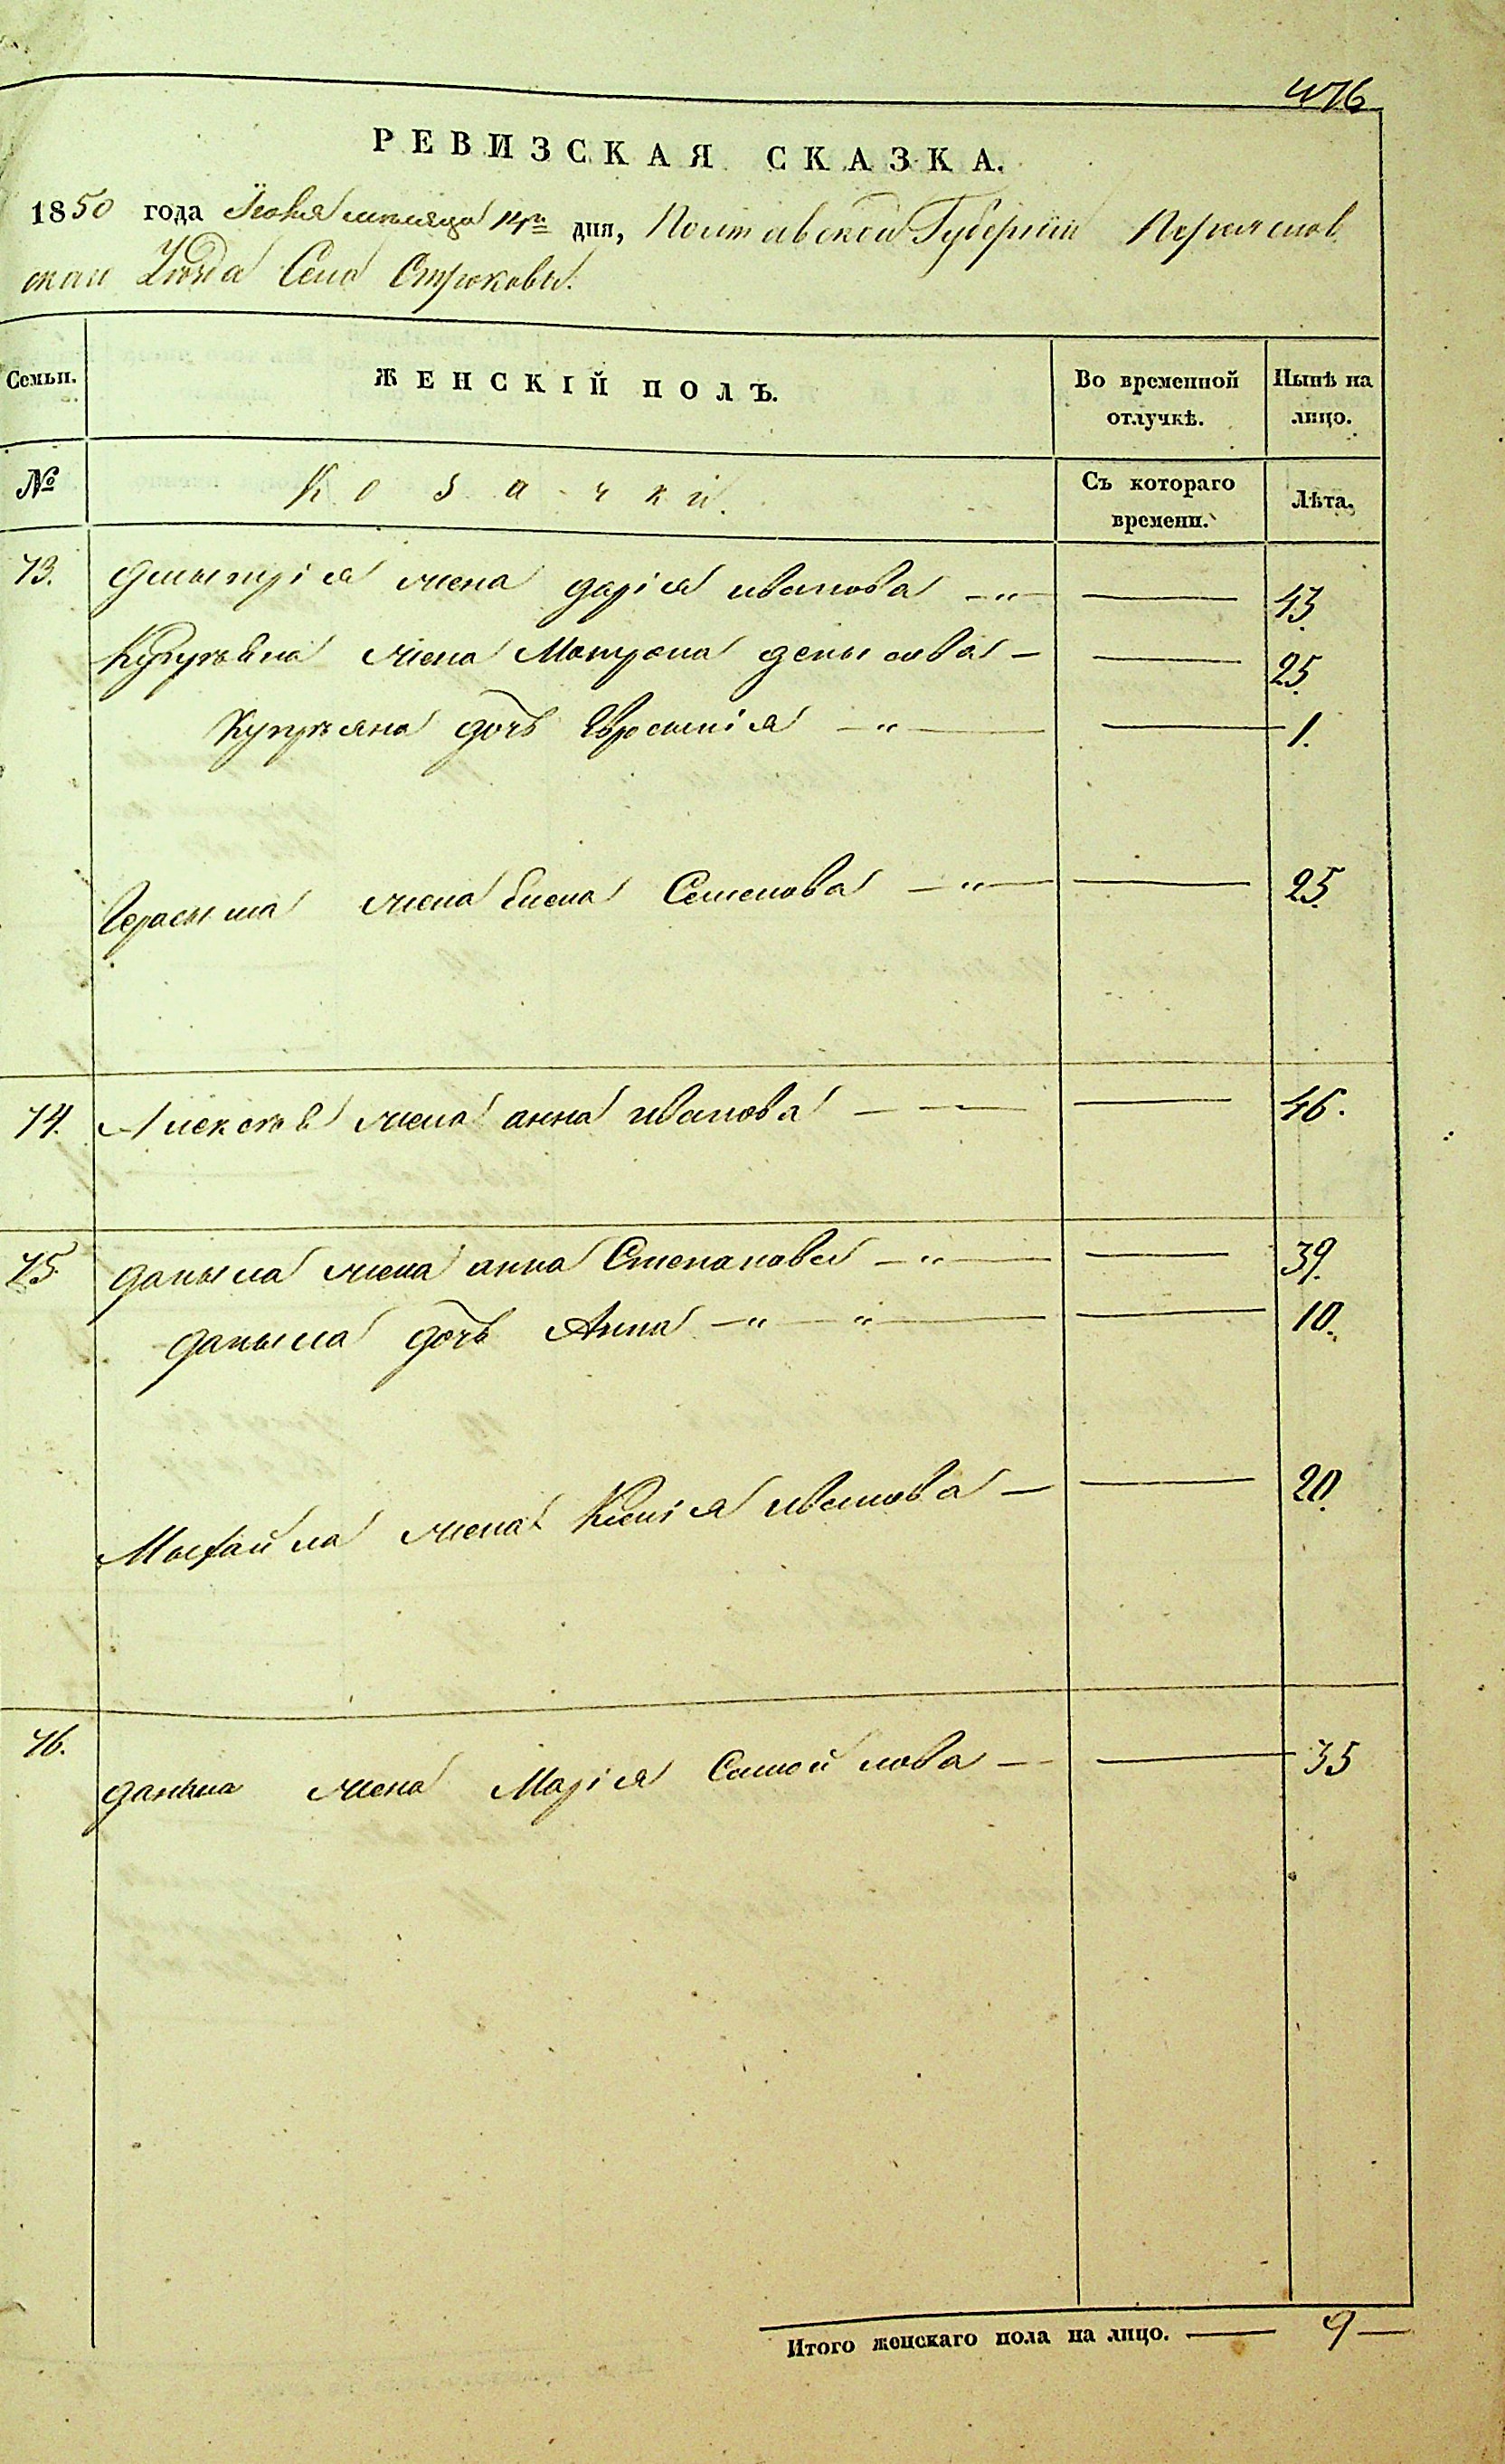 476
РЕВИЗСКАЯ СКАЗКА.
1850 года Іюня месяца 14го дня, Полтавской Губерніи Переяслов
скаго Уезда Села Строковы.
Семьи. ЖЕНСКІЙ ПОЛЪ. Во временной отлучкѣ. Нынѣ на лицо.
№ Козачки. Съ котораго времени. Лѣта.
73. Дмытрія жена Дарія Иванова — 43.
Жена Матрона Денысова — 25.
Дочь Евросинія — 1.
Герасыма жена Елена Семенова — 25.
74. Алексѣя жена Анна Иванова — 46.
75 Даныла жена Анна Степанова — 39.
Даныла дочь Анна — 10.
Мыхайла жена Ксенія Иванова — 20.
76. Даныла жена Марія Самойлова — 35
Итого женскаго пола на лицо. — 9 —